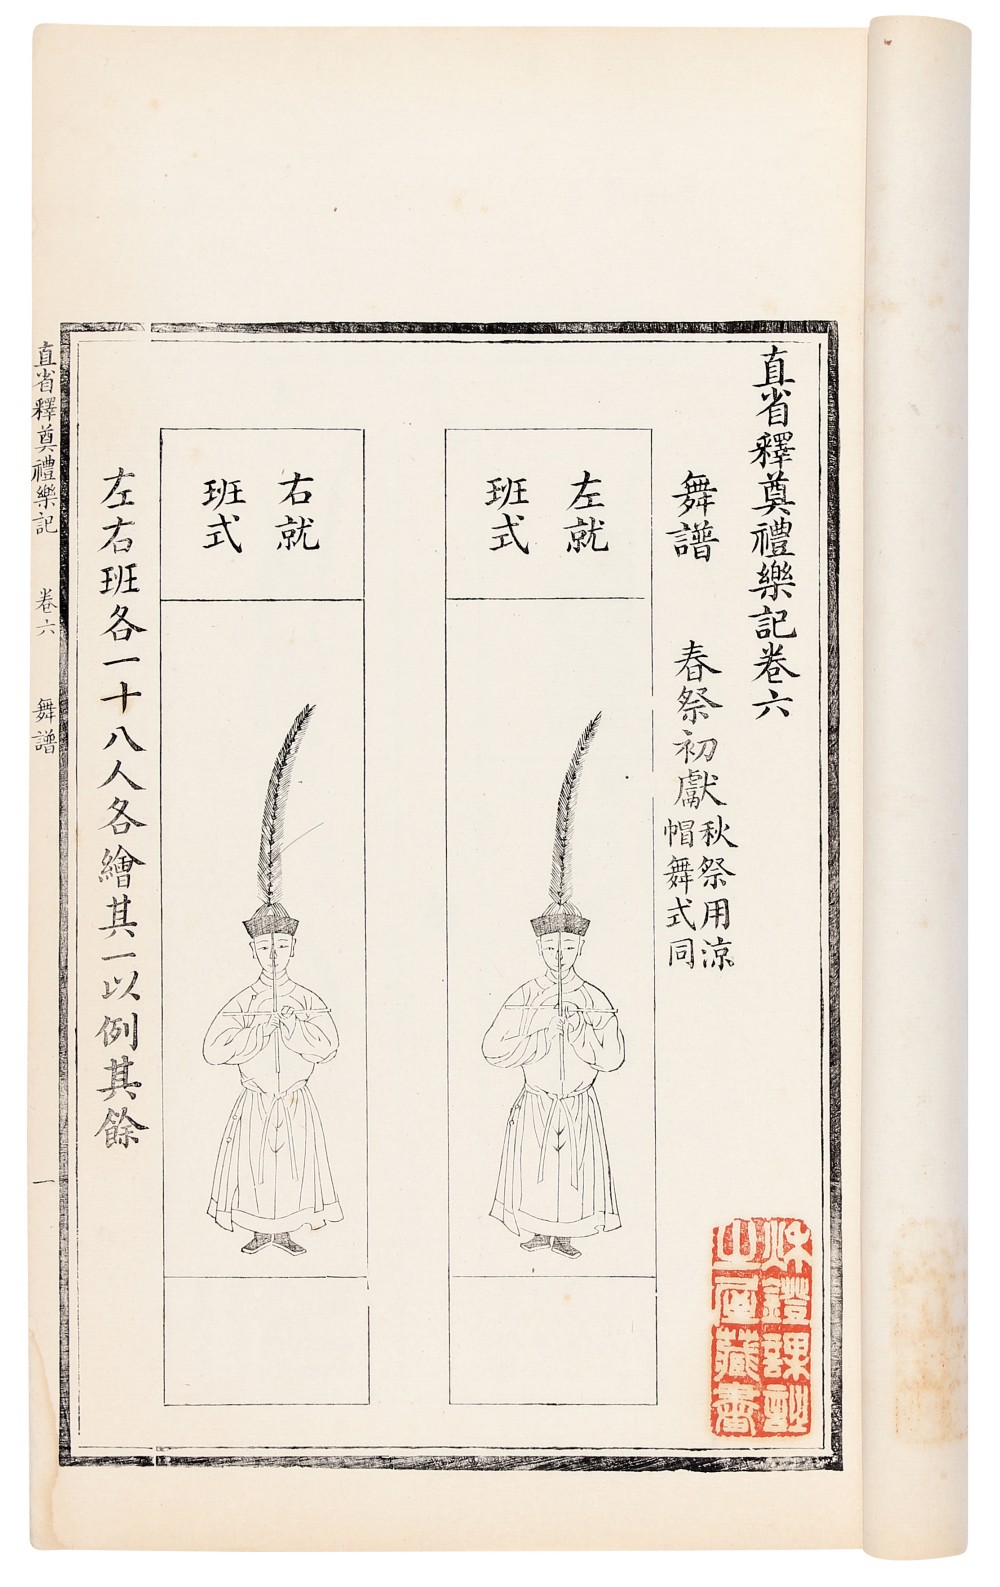 直省釋奠禮樂記卷六
舞譜 春祭初獻
秋祭用涼
帽舞式同
左就
班式
右就
班式
左右班各一十八人各繪其一以例其餘
直省釋奠禮樂記 卷六 舞譜 一
秋鐙課詩
之屋藏書